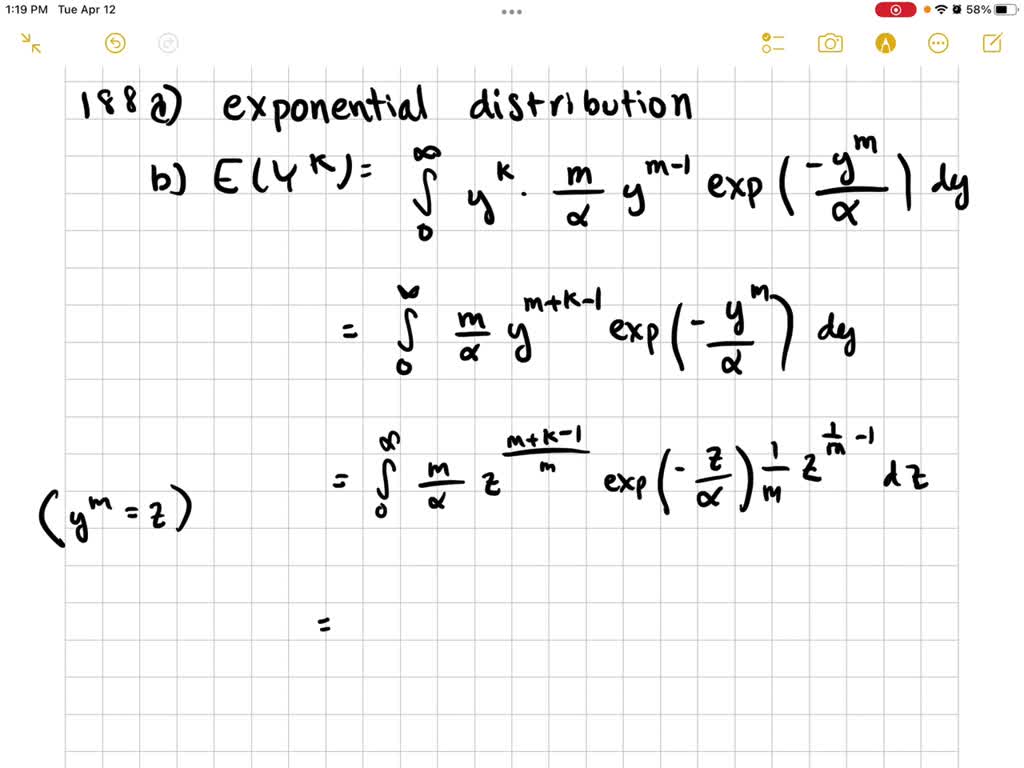 1:19 PM Tue Apr 12
58%
188 a) exponential distribution
b) E(Y^k) = ∫₀^∞ y^k · m/α y^(m-1) exp(-y^m/α) dy
= ∫₀^∞ m/α y^(m+k-1) exp(-y^m/α) dy
(y^m = z) = ∫₀^∞ m/α z^((m+k-1)/m) exp(-z/α) 1/m z^(1/m -1) dz
=